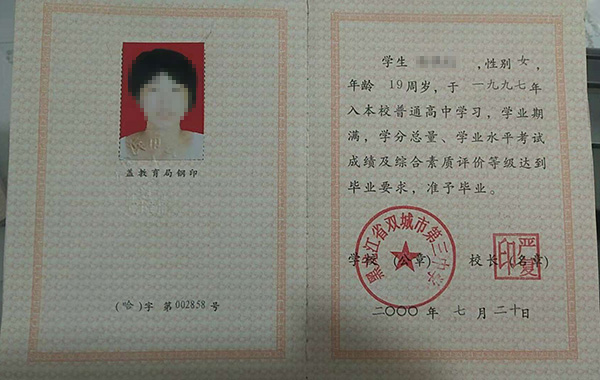 盖教育局钢印
(哈)字 第002858号
学生 ,性别女,
年龄 19周岁,于 一九九七年
入本校普通高中学习,学业期
满,学分总量、学业水平考试
成绩及综合素质评价等级达到
毕业要求,准予毕业。
黑龙江省双城市第三中学
学校 (公章) 校长 (名章)
严夏印
二〇〇〇年 七月二十日